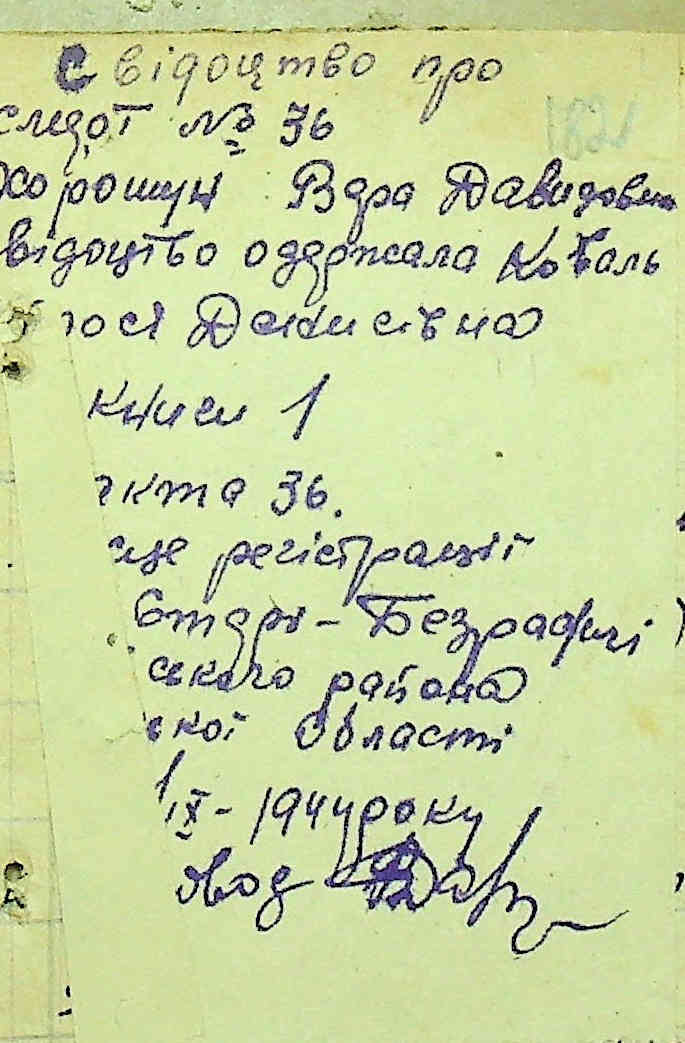 Свідоцтво про
182
следот № 36
Хорошун Вәра Давидовн
відоцтво одержала Коваль
юся Денисівна
книги 1
акта 36.
сце регістрації
Старі-Безрадичі
ського района
ської області
1/IX-1944 року